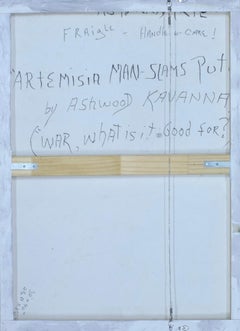 FRAigle - HANDle w CARE!
"ARTEMISIA MAN-SLAMS PUT
by ASHWOOD KAVANNA
("WAR, WHAT is iT GOOD FOR?